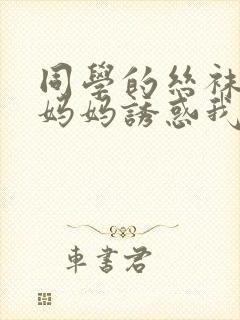 同學的絲袜
妈妈誘惑我
車書君